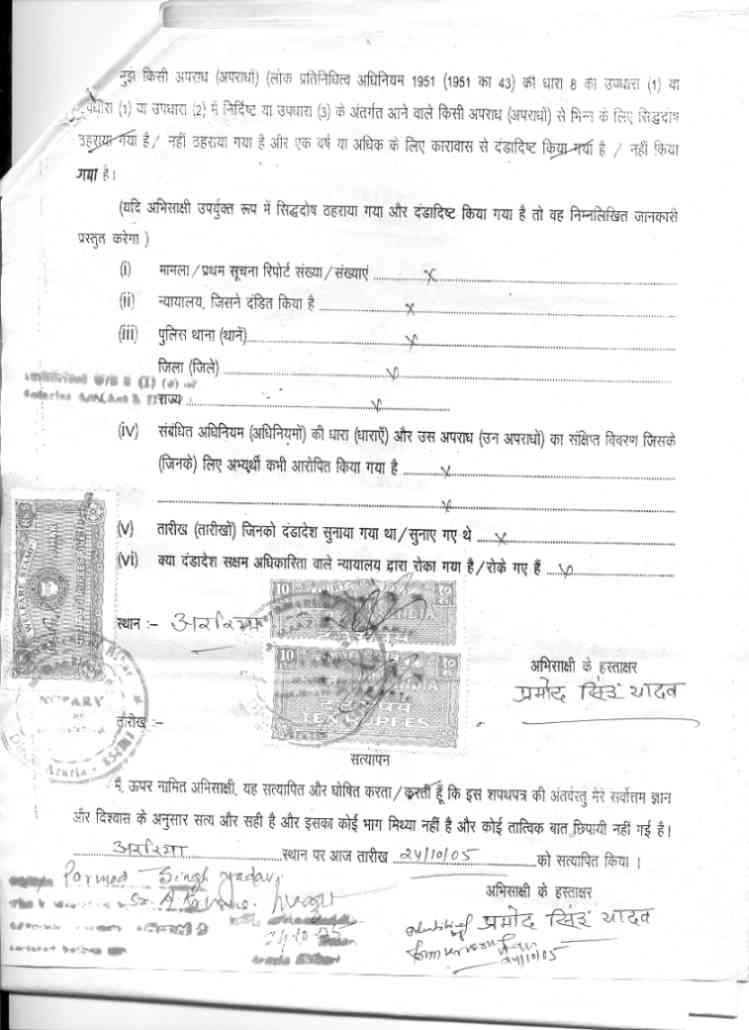 मुझे किसी अपराध (अपराधों) (लोक प्रतिनिधित्व अधिनियम 1951 (1951 का 43) की धारा 8 की उपधारा (1) या
उपधारा (1) या उपधारा (2) में निर्दिष्ट या उपधारा (3) के अंतर्गत आने वाले किसी अपराध (अपराधों) से भिन्न के लिए सिद्धदोष
ठहराया गया है / नहीं ठहराया गया है और एक वर्ष या अधिक के लिए कारावास से दंडादिष्ट किया गया है / नहीं किया
गया है।
(यदि अभिसाक्षी उपर्युक्त रूप में सिद्धदोष ठहराया गया और दंडादिष्ट किया गया है तो वह निम्नलिखित जानकारी
प्रस्तुत करेगा)
(i) मामला / प्रथम सूचना रिपोर्ट संख्या / संख्याएं ........ x
(ii) न्यायालय, जिसने दंडित किया है ........ x
(iii) पुलिस थाना (थानें) ........ x
जिला (जिले) ........ x
राज्य ........ x
(iv) संबंधित अधिनियम (अधिनियमों) की धारा (धाराएँ) और उस अपराध (उन अपराधों) का संक्षिप्त विवरण जिसके
(जिनके) लिए अभ्यर्थी कभी आरोपित किया गया है ........ x
........ x
(v) तारीख (तारीखों) जिनको दंडादेश सुनाया गया था / सुनाए गए थे ........ x
(vi) क्या दंडादेश सक्षम अधिकारिता वाले न्यायालय द्वारा रोका गया है / रोके गए हैं ........ x
10 १०
INDIA
स्थान :- अररिया
10 १०
INDIA
TEN RUPEES
WELFARE STAMP
अभिसाक्षी के हस्ताक्षर
प्रमोद सिंह यादव
NOTARY
Araria
तारीख :-
सत्यापन
मैं, ऊपर नामित अभिसाक्षी, यह सत्यापित और घोषित करता / करती हूँ कि इस शपथपत्र की अंतर्वस्तु मेरे सर्वोत्तम ज्ञान
और विश्वास के अनुसार सत्य और सही है और इसका कोई भाग मिथ्या नहीं है और कोई तात्विक बात छिपायी नहीं गई है।
अररिया ........ स्थान पर आज तारीख 24/10/05 ........ को सत्यापित किया।
Parmod Singh Yadav
अभिसाक्षी के हस्ताक्षर
प्रमोद सिंह यादव
24-10-05
24/10/05